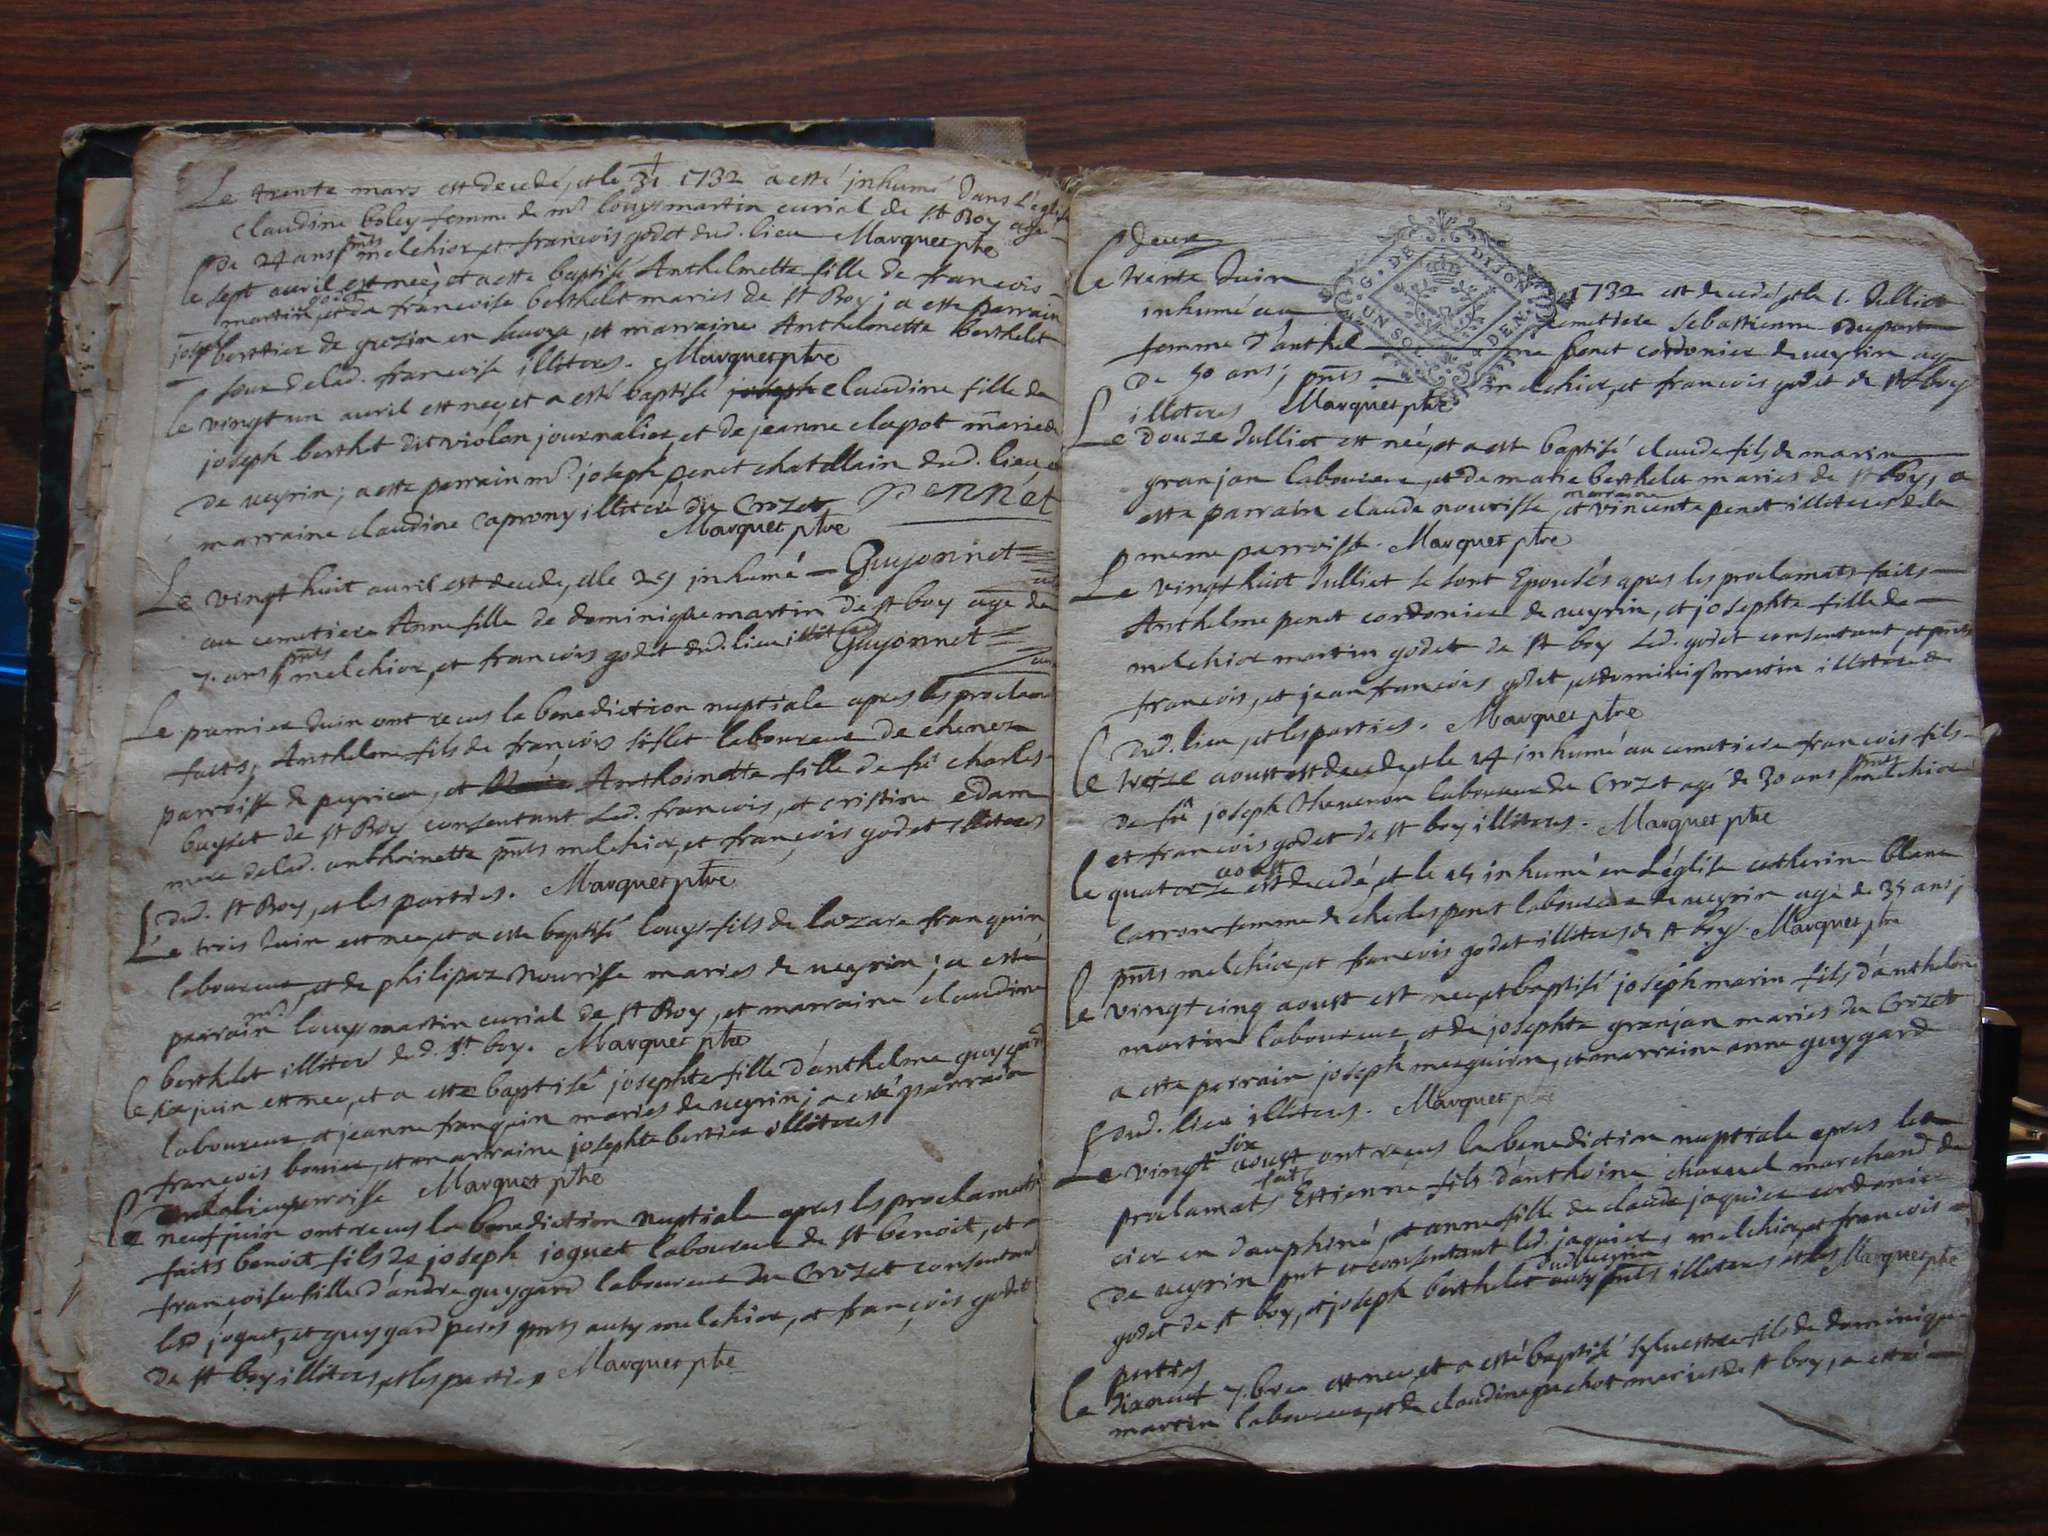 Le trente mars est decedé, et le 31 1732 a esté inhumé dans L'eglise
claudine boley femme de mr louys martin curial de St Boy agé
de 24 ans pnts melchior et francois godet dud. lieu Marquet ptre
le sept avril est neè, et a este baptisé Anthelmette fille de francois
martin et de francoise berthelet mariés de St Boy; a este parrain
joseph berthier de grezin en savoye, et marraine Anthelmette berthelet
sour de lad. francoise illiteres. Marquet ptre
le vingt un avril est neé, et a esté baptisé joseph claudine fille de
joseph berthet dit violon journalier, et de jeanne clapot mariés
de veyrin; a este parrain mr joseph penet chatellain dud. lieu et
marraine claudine caprony illiteré du Crozet Pennet
Marquet ptre
Le vingt huit avril est decedé, et le 29 inhumé Guyonnet
au cemetiere Anne fille de dominique martin de st boy agé de
7. ans pnts melchior, et francois godet dud. lieu illiteres Guyonnet
Le premier Juin ont reçus la benediction nuptiale apres les proclamats
faits, Anthelme fils de francois siflet laboureur de chenez
parroisse de peyrieu, et Anthoinette fille de fû charles
buyset de St Boy consentant Led. francois, et cristine edam
mere de lad. anthoinette pnts melchior, et françois godet illiteres
dud. St Boy, et les parties. Marquet ptre
Le trois Juin est né, et a esté baptisé louys fils de lazare franquin
laboureur, et de philipaz Nourisse mariés de veyrin; a esté
parrain mr louys martin curial de St Boy, et marraine claudine
berthelet illiteré dud. St boy. Marquet ptre
le six juin est neé, et a esté baptisé josephte fille d'anthelme guygard
laboureur et jeanne franquin mariés de veyrin; a esté parrain
francois bovier, et marraine josephte bertier illiteres
de la parroisse Marquet ptre
Le neuf juin ont reçus la benediction nuptiale apres les proclamats
faits benoit fils de joseph joguet laboureur de st benoit, et
françoise fille d'andré guygard laboureur du Crozet consentant
led joguet, et guygard peres pnts aussy melchior, et françois godet
de st boy illiteres, et les parties Marquet ptre
deux
G. DE DIJON
UN SOL DEN.
le trente Juin 1732 est decedé, et le 1. Julliet
inhumé au cemetiere sebastienne duport
femme d'anthelme penet cordonier de veyrin agé
de 50 ans; pnts melchior, et francois godet de st boy
illiteres Marquet ptre
Le douze Julliet est né, et a esté baptisé claude fils de marin
granjan laboureur, et de marie berthelet mariés de st boy, a
esté parrain claude nourisse, et marraine vincente penet illiteres de la
meme parroisse. Marquet ptre
Le vingt huit Julliet se sont Epousés apres les proclamats faits
Anthelme penet cordonier de veyrin, et josephte fille de
melchior martin godet de st boy led. godet consentant et pnts
francois, et jean francois godet, et dominiq martin illiteres
dud. lieu, et les parties. Marquet ptre
le treize aoust est decedé, et le 14 inhumé au cemetiere francois fils
de fû joseph Thevenon laboureur du Crozet agé de 30 ans pnts melchior
et francois godet de st boy illiteres. Marquet ptre
le quatorze aoust est decedé, et le 15 inhumé en L'église catherine blanc
carron femme de charles penet laboureur de veyrin agé de 35 ans;
pnts melchior, et francois godet illiteres de st boy. Marquet ptre
le vingt cinq aoust est né, et baptisé joseph marin fils d'anthelme
martin laboureur, et de josephte granjan mariés du Crozet
a esté parrain joseph, et marraine anne guygard
dud. lieu illiteres. Marquet ptre
Le vingt six aoust ont reçus la benediction nuptiale apres les
proclamats fait Estienne fils d'anthoine charvet marchand de
cier en dauphiné, et anne fille de claude jaquier cordonier
de veyrin pnt et consentant led. jaquier, melchior, et francois
godet de st boy, et joseph berthelet dud veyrin aussy pnts illiteres et les Marquet ptre
parties
le dixneuf 7.bre est né, et a esté baptisé sylvestre fils de dominique
martin laboureur, et de claudine guchot mariés de st boy, a esté